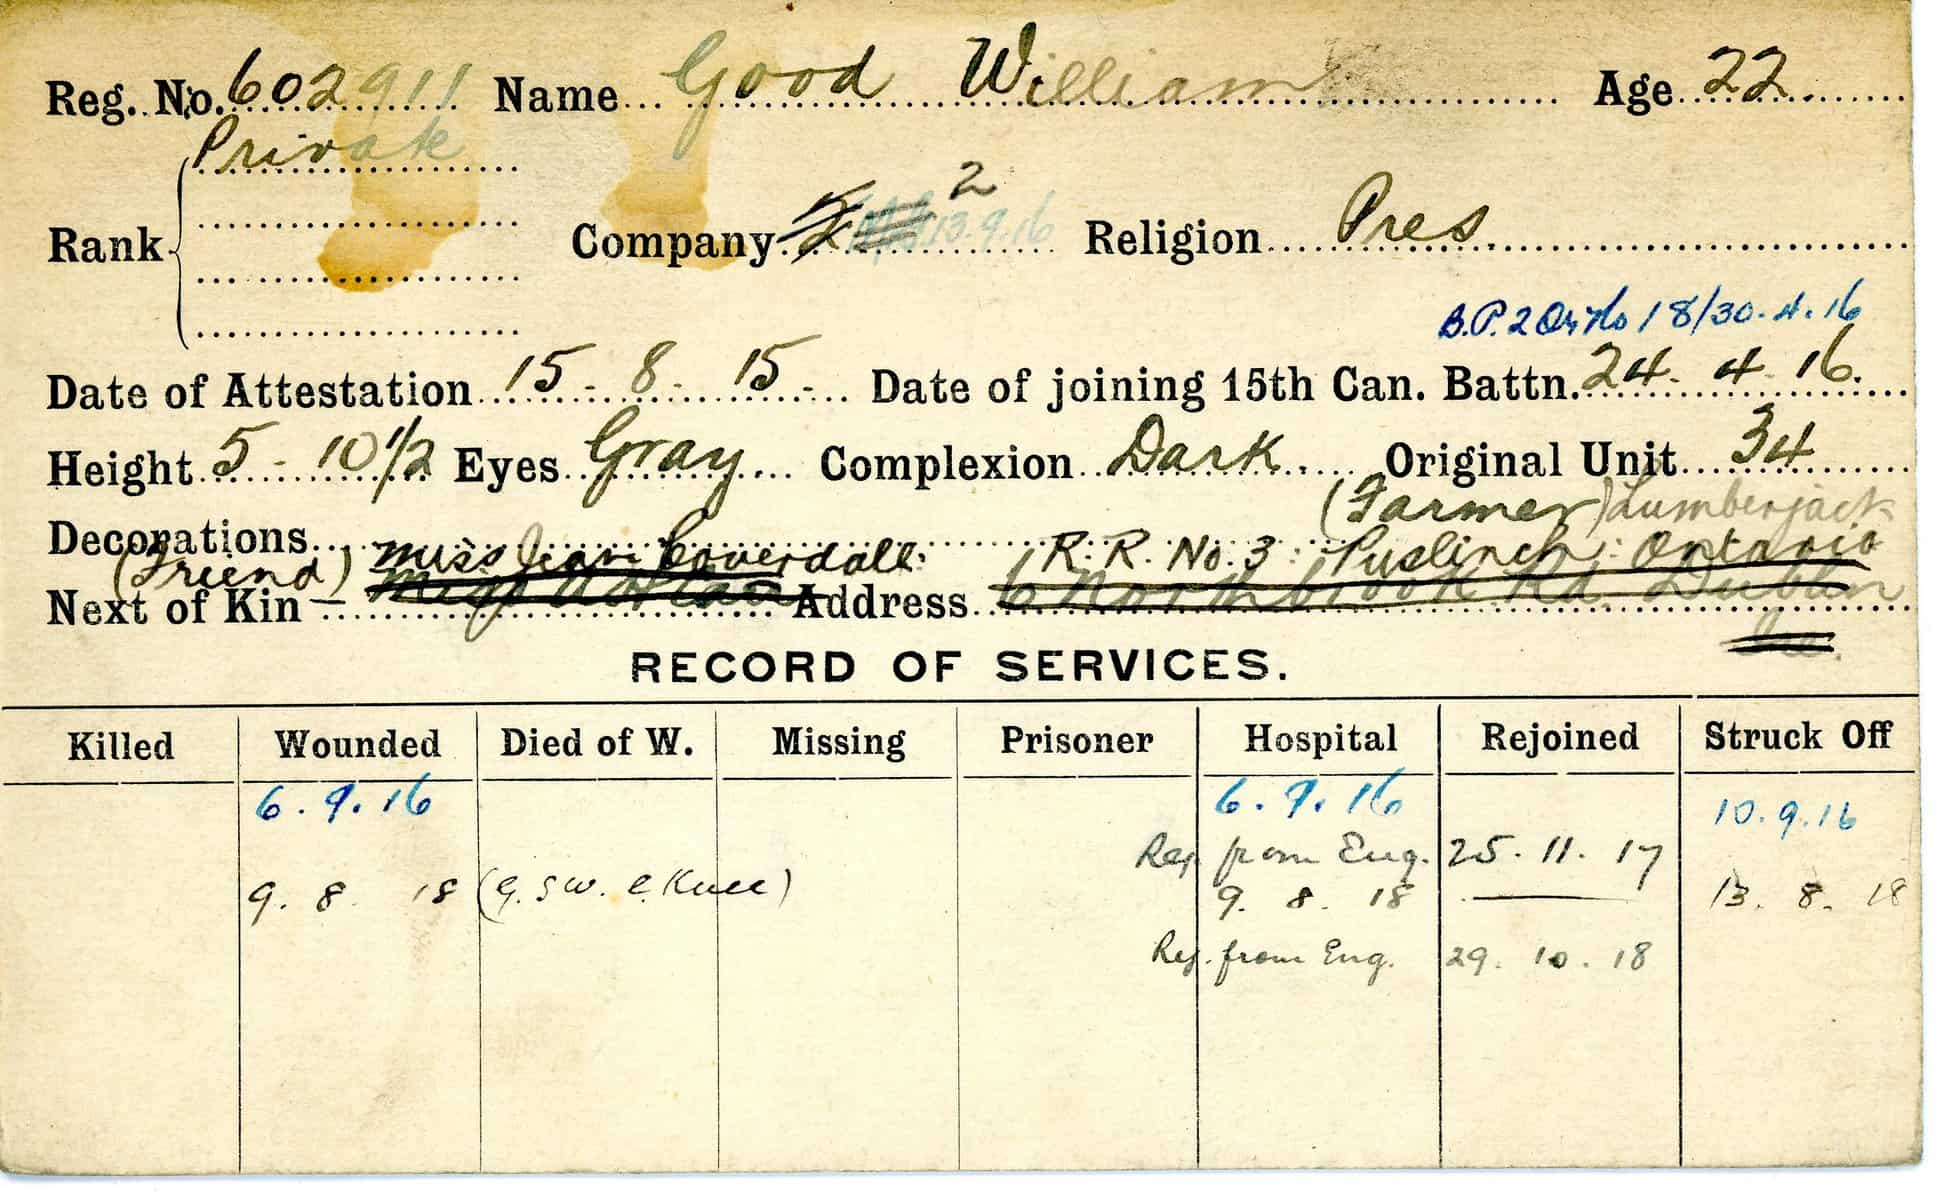 Reg. No. 602911 Name Good William Age 22.
Private
Rank Company 2 13.9.16 Religion Pres.
B.P. 2 Or. No 18/30.4.16
Date of Attestation 15 - 8 - 15 - Date of joining 15th Can. Battn. 24. 4. 16.
Height 5 - 10 1/2 Eyes Gray Complexion Dark. Original Unit 34
(Farmer) Lumberjack
Decorations
(Friend) Miss Jean Coverdale. R.R. No. 3 : Puslinch : Ontario
Next of Kin — Miss Address 6 Northbrook Rd. Dublin
RECORD OF SERVICES.
Killed Wounded Died of W. Missing Prisoner Hospital Rejoined Struck Off
6.9.16 6.9.16 10.9.16
Rej. from Eng. 25.11.17
9. 8 18 (G.S.W. Knee) 9. 8. 18 — 13. 8. 18
Rej. from Eng. 29. 10. 18